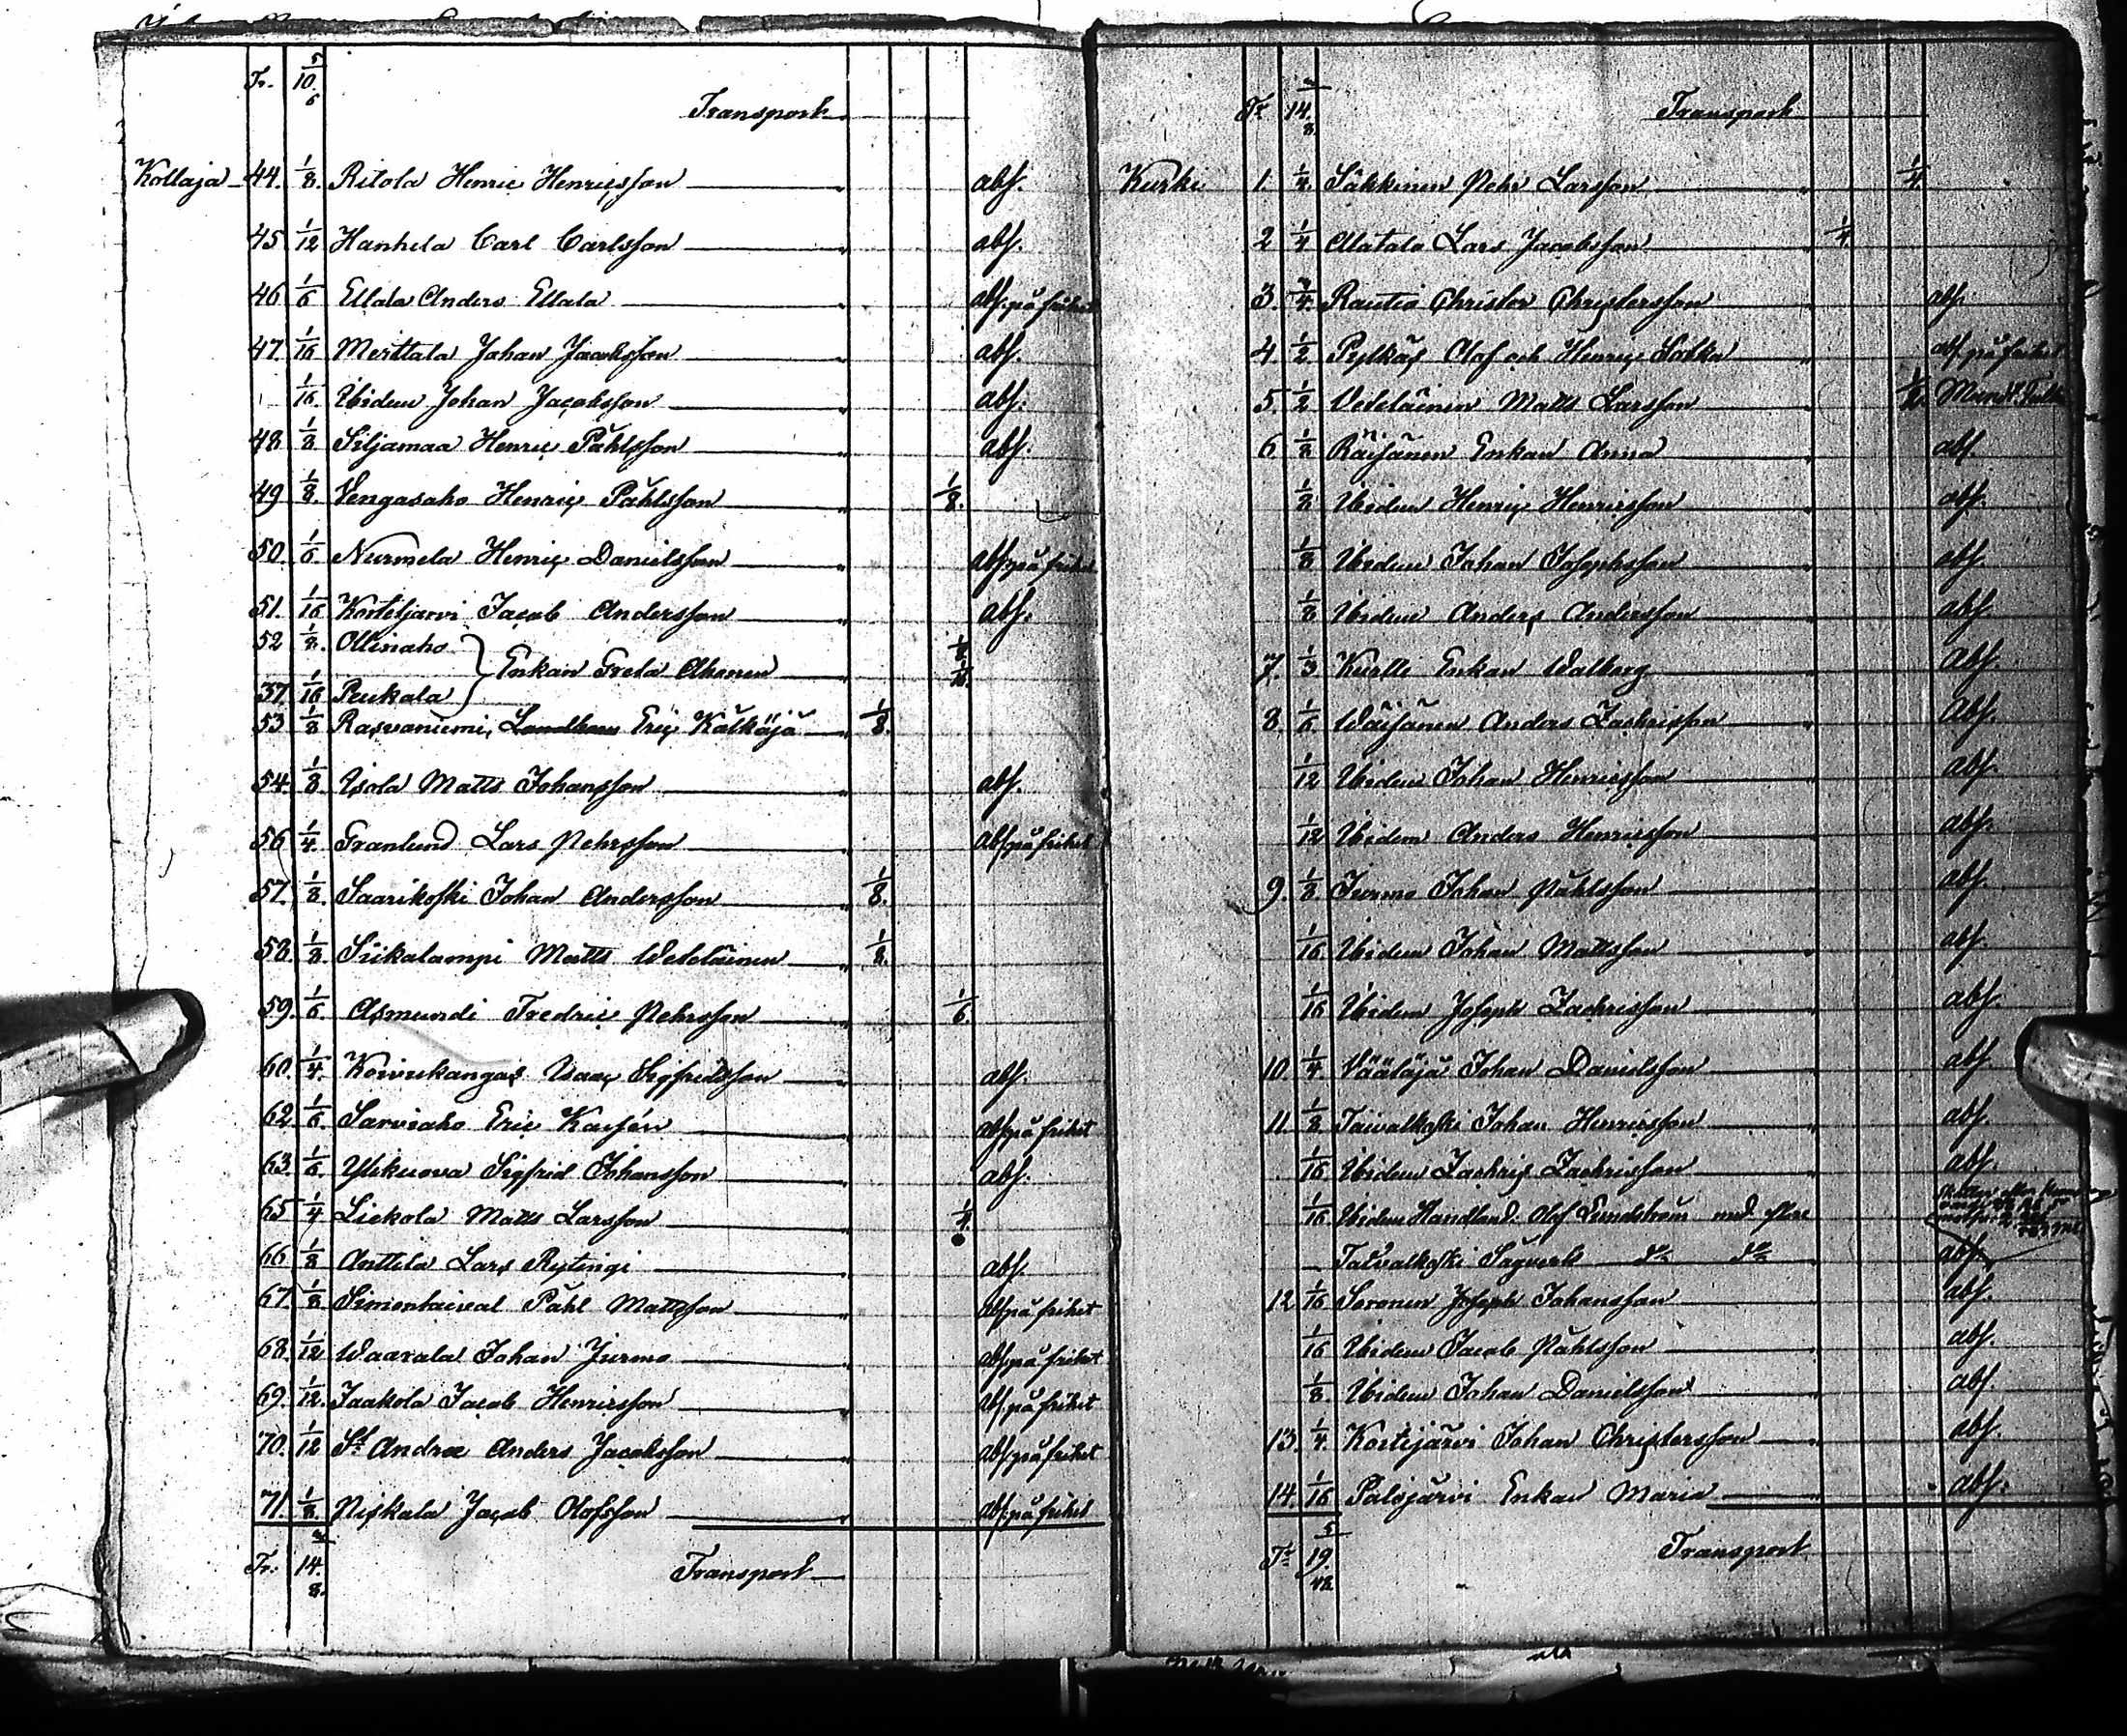 Tr. 10 5/6
Transport
Kollaja 44. 1/8. Ritola Henric Henricsson abs.
45. 1/12 Hanhela Carl Carlsson abs.
46 1/6 Ellala Anders Ellala abs. på frihet
47. 1/16 Merttala Johan Jacobsson abs.
1/16. Ibidem Johan Jacobsson abs.
48. 1/8 Siljamaa Henric Påhlsson abs.
49 1/8. Vengasaho Henric Påhlsson 1/8.
50. 1/6 Nurmela Henric Danielsson abs på frihet
51. 1/16 Kortetjarvi Jacob Andersson abs.
52 1/8. Ollinaho
Enkan Greta Ahonen 1/8 1/16.
37. 1/16 Peukala
53 1/8 Rasvaniemi, Eric Kälkäjä 1/8.
54. 1/8 Isola Matts Johansson abs.
56 1/4. Granlund Lars Pehrsson abs på frihet
57. 1/8. Saarikoski Johan Andersson 1/8.
58. 1/8. Siikalampi Matts Wedeläinen 1/8.
59. 1/6. Asmundi Fredric Pehrsson 1/6.
60. 1/4. Koivukangas Isaac Sigfridsson abs.
62. 1/6. Sarviaho Eric Kaisén abs på frihet
63. 1/6. Ylikuova Sigfrid Johansson abs.
65 1/4 Liekola Matts Larsson 1/4.
66 1/8 Anttila Lars Rytingi abs.
67. 1/8 Simontaival Påhl Mattsson abs på frihet
68. 1/12 Waarala Johan Jurmo abs på frihet
69. 1/12. Jaakola Jacob Henricsson abs. på frihet
70. 1/12 St Andræ Anders Jacobsson abs på frihet
71. 1/8. Niskala Jacob Olofsson abs. på frihet
Tr. 14. Transport
Tr 14. Transport
Kurki 1. 1/4. Säkkinen Pehr Larsson 1/4.
2 1/4 Alatalo Lars Jacobsson 1/4.
3. Rautio Christer Christersson abs.
4. 1/2 Pylkäs Olof och Henric Sakka abs. på frihet
5. 1/2 Vedeläinen Matts Larsson 1/2.
6 1/8 Räisänen Enkan Anna abs.
1/8 Ibidem Henric Henricsson abs.
1/8 Ibidem Johan Josephsson abs.
1/8 Ibidem Anders Andersson abs.
7. 1/3 Kurtti Enkan Walborg abs.
8. 1/6 Wäisänen Anders Zachrisson abs.
1/12 Ibidem Johan Henricsson abs.
1/12 Ibidem Anders Henricsson abs.
9. 1/8. Jurmo Johan Påhlsson abs.
1/16 Ibidem Johan Mattsson abs.
1/16 Ibidem Joseph Zachrisson abs.
10. 1/4 Vääläjä Johan Danielsson abs.
11. 1/8 Taivalkoski Johan Henricsson abs.
1/16 Ibidem Zachris Zachrisson abs.
1/16 Ibidem Handland. Olof Lundström med flere
Taivalkoski Sågverk do do abs.
12 1/16 Soronen Joseph Johansson abs.
1/16 Ibidem Jacob Påhlsson abs.
1/8 Ibidem Johan Danielsson abs.
13. 1/4. Kortijärvi Johan Christersson abs.
14. 1/16 Palojärvi Enkan Maria abs.
Tr 19. 5/48 Transport